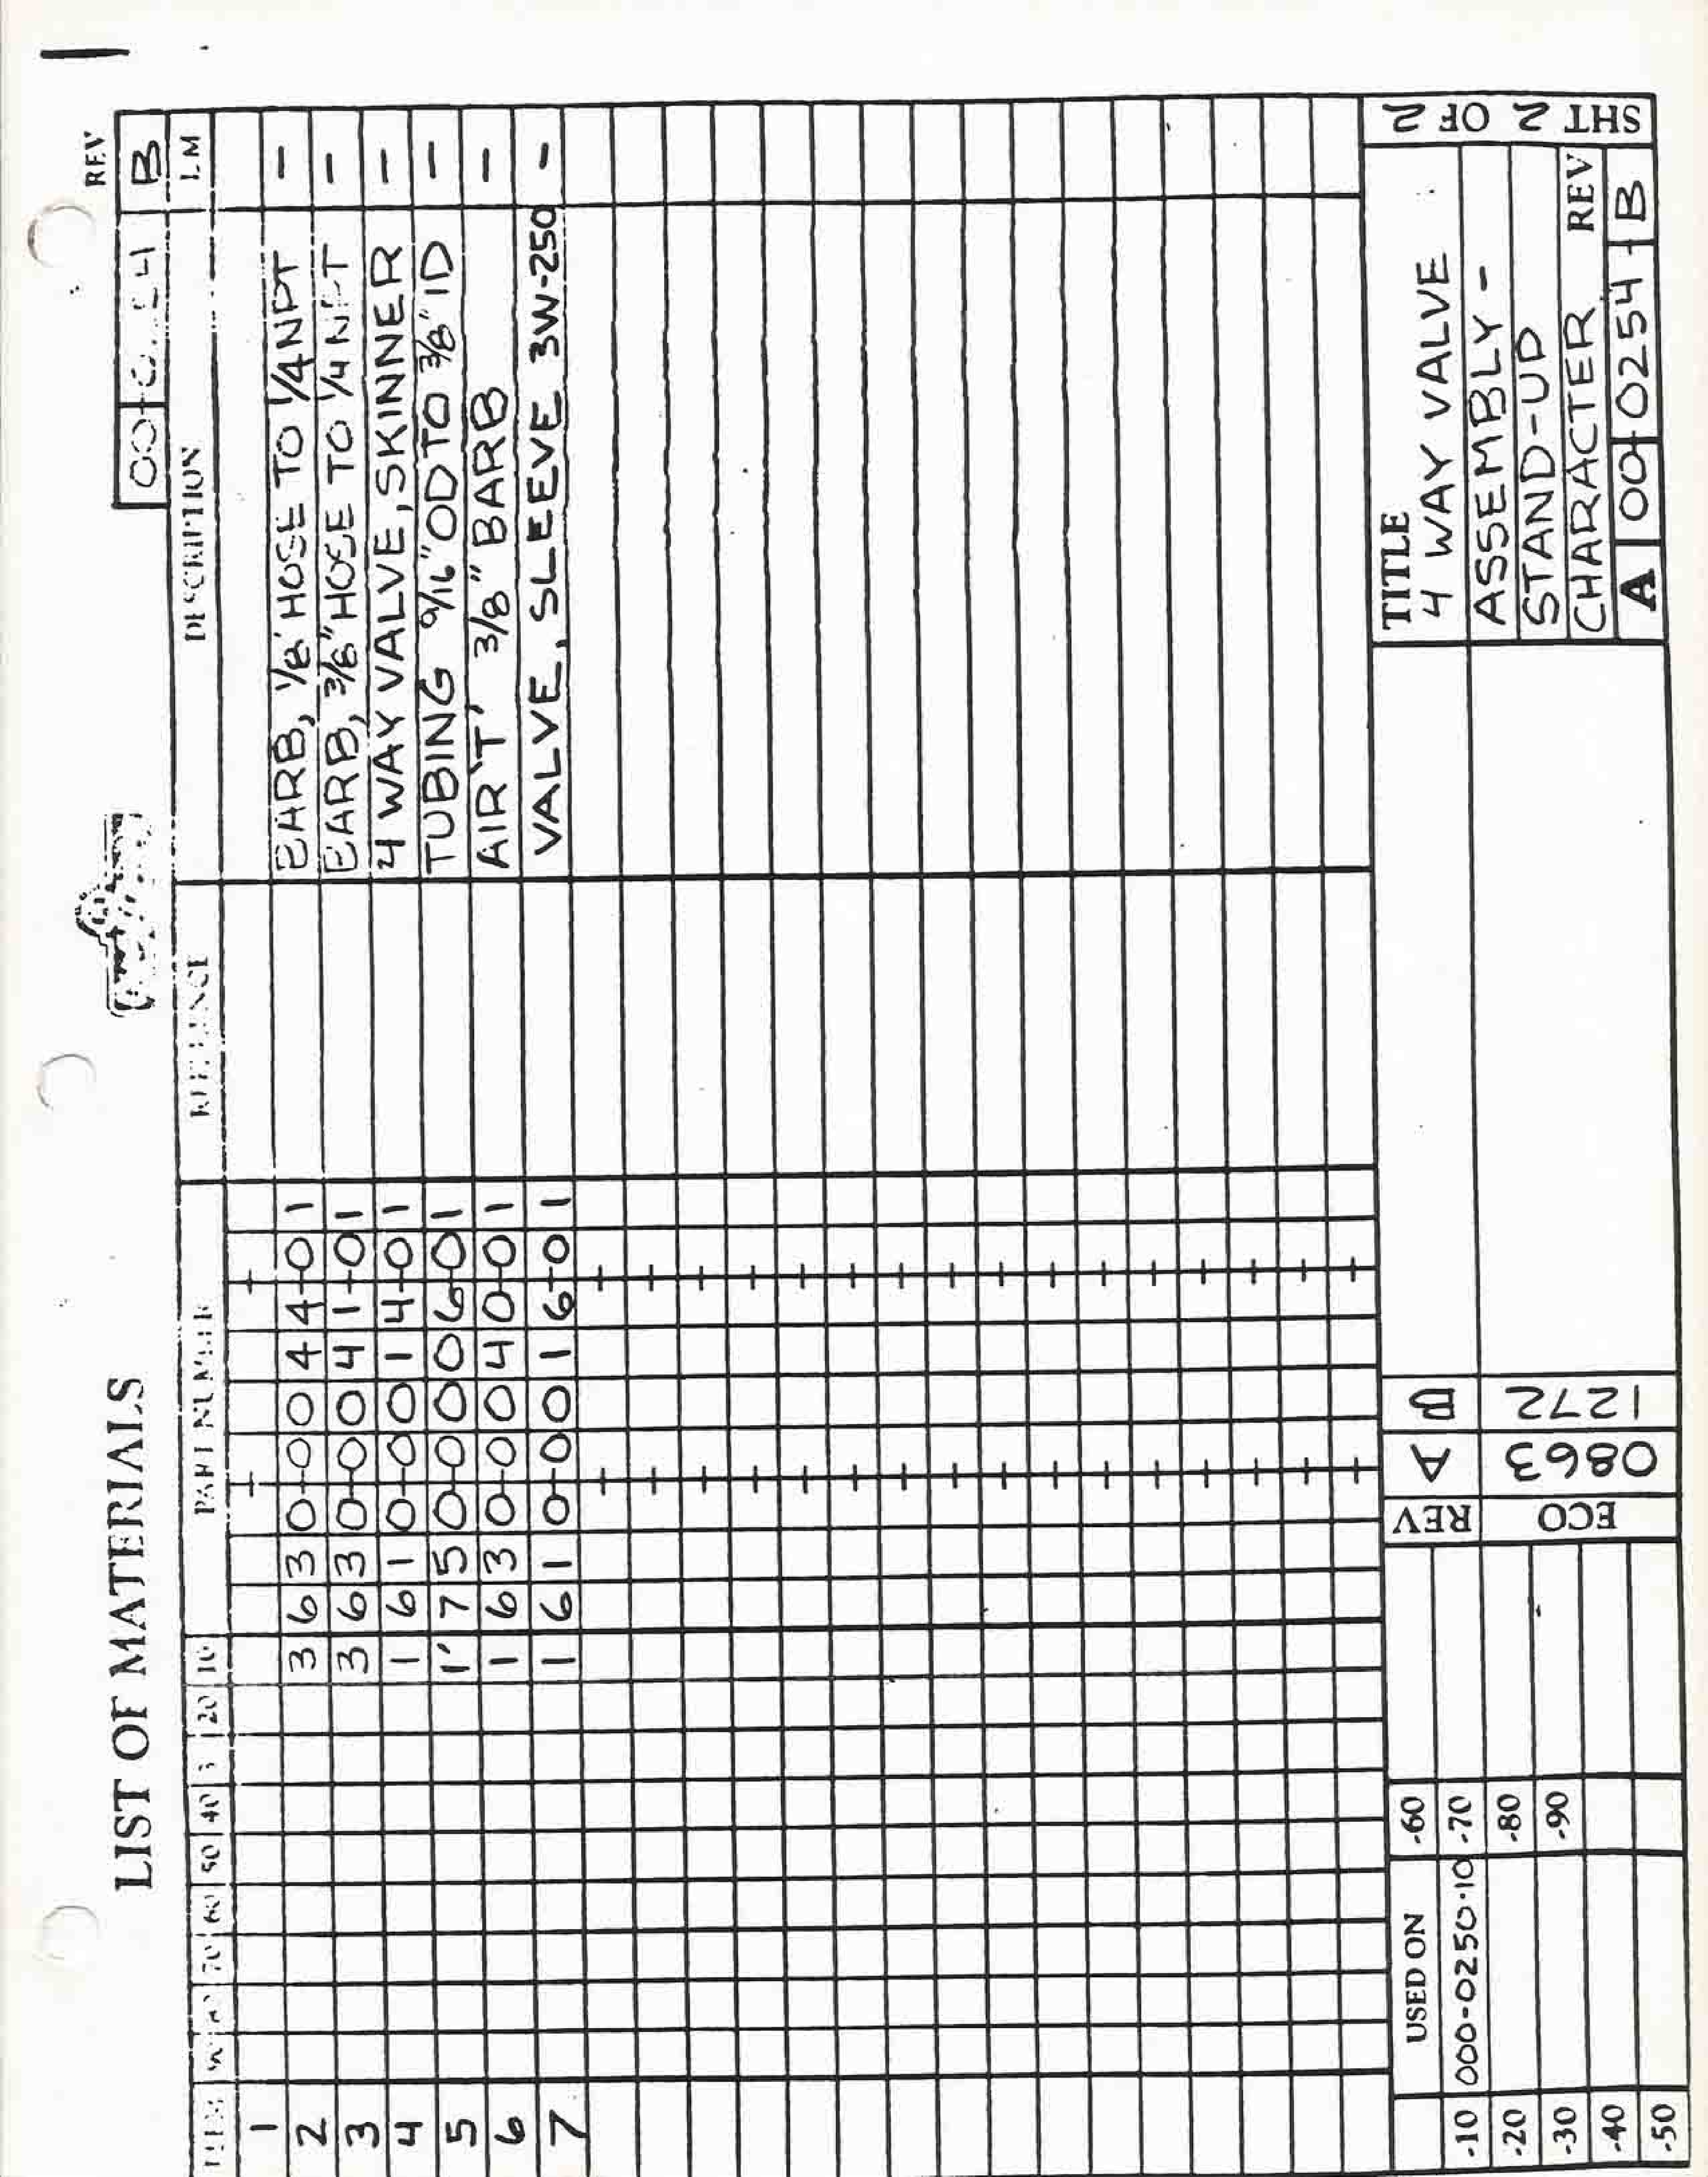 LIST OF MATERIALS
REV
00 B
ITEM 70 60 50 40 20 10 PART NUMBER REFERENCE DESCRIPTION LM
1
2 3 630-0044-01 BARB, 1/8" HOSE TO 1/4 NPT -
3 3 630-0041-01 BARB, 3/8" HOSE TO 1/4 NPT -
4 1 610-0014-01 4 WAY VALVE, SKINNER -
5 1' 750-0006-01 TUBING 9/16" OD TO 3/8" ID -
6 1 630-0040-01 AIR 'T' 3/8" BARB -
7 1 610-0016-01 VALVE, SLEEVE 3W-250 -
USED ON
-10 000-0250-10
-20
-30
-40
-50
-60
-70
-80
-90
REV A B
ECO 0863 1272
TITLE
4 WAY VALVE
ASSEMBLY -
STAND-UP
CHARACTER REV
A 00 0254 B
SHT 2 OF 2